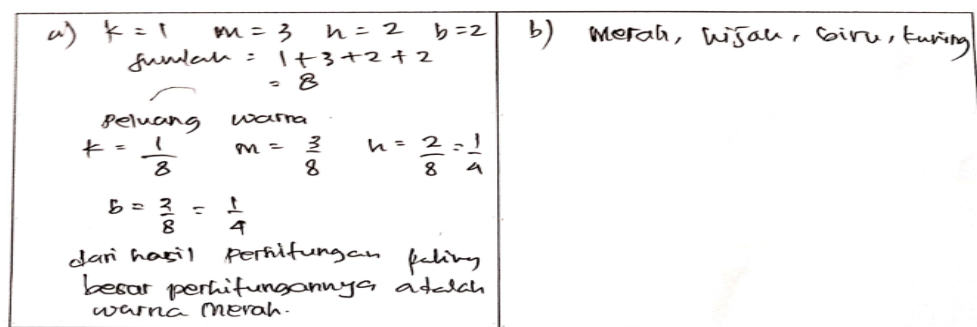 a) k = 1 m = 3 h = 2 b = 2
Jumlah = 1 + 3 + 2 + 2
= 8
Peluang warna
k = 1/8 m = 3/8 h = 2/8 = 1/4
b = 2/8 = 1/4
dari hasil perhitungan paling
besar perhitungannya adalah
warna merah.
b) merah, hijau, biru, kuning